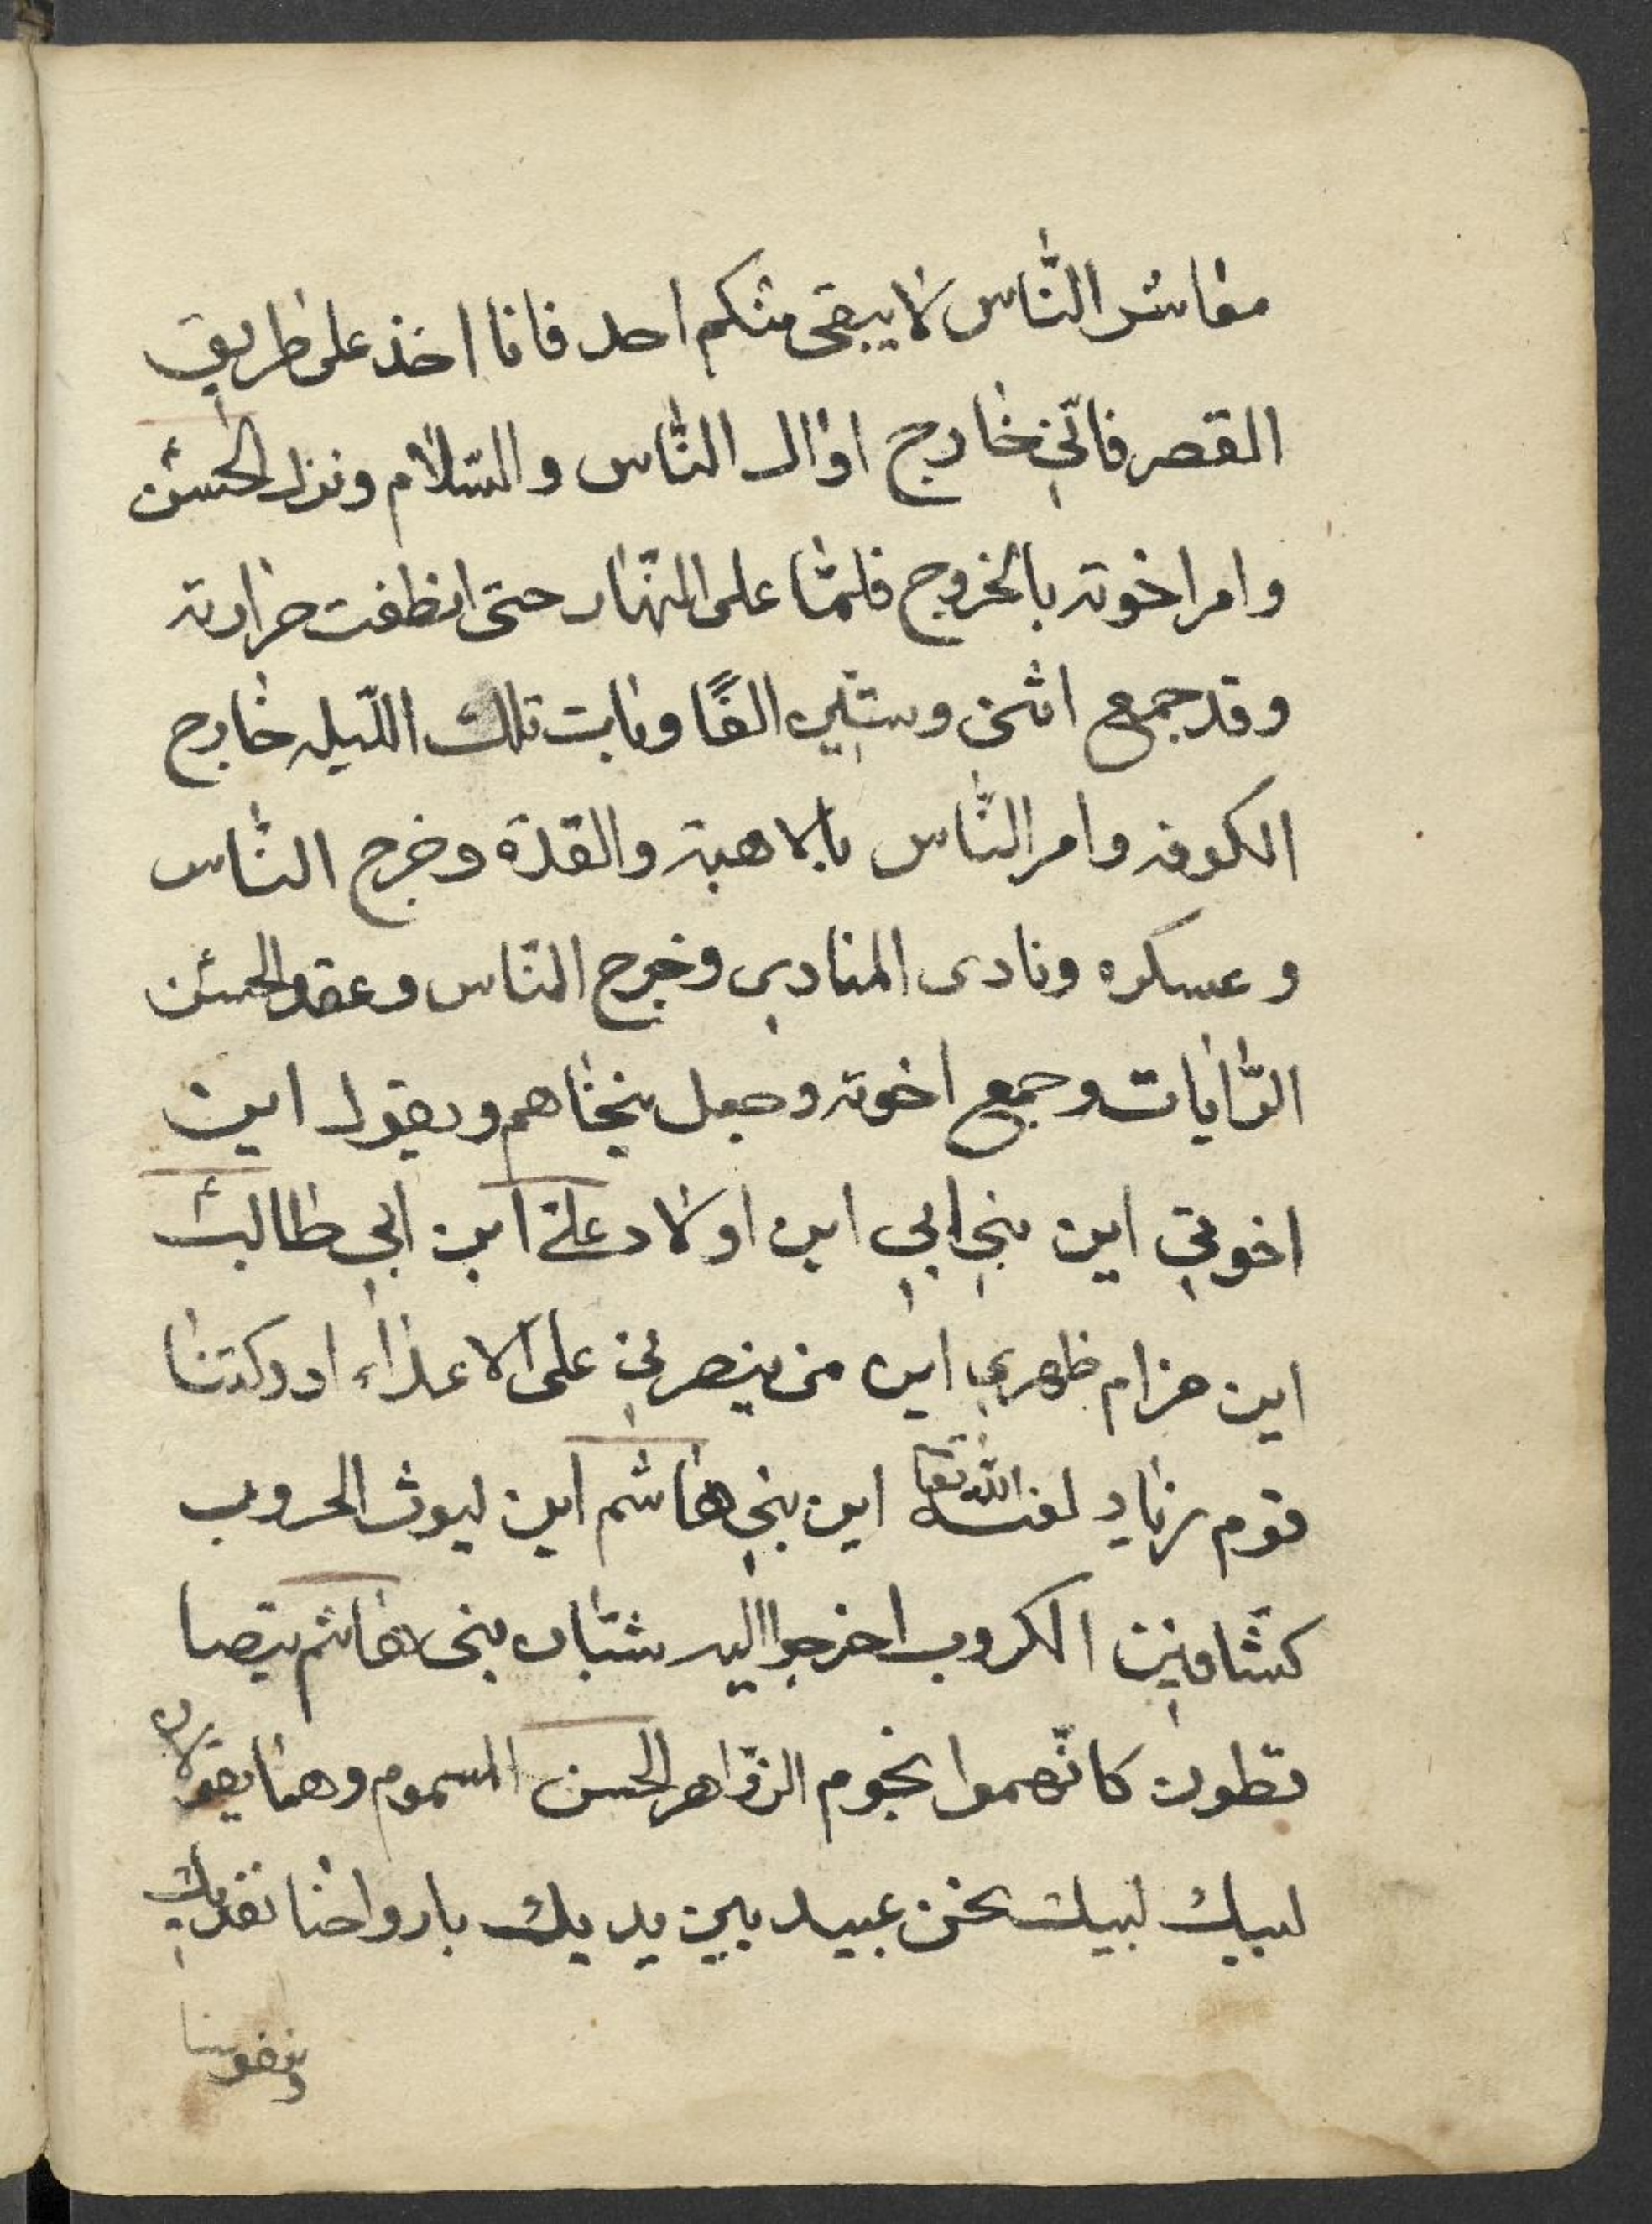 معاشر الناس لا يبقى منكم احد فانا اخذ على طريق
القصر فانّي خارج اوال النّاس والسّلام ونزل الحسن
وامر اخوته بالخروج فلمّا على النّهار حتى انطفت حرارته
وقد جمع اثنى وستّين الفًا وبابت تلك اللّيله خارج
الكوفه وامر النّاس بالاهبة والقدة وخرج النّاس
وعسكره ونادى المنادي وخرج النّاس وعقد الحسن
الرّايات وجمع اخوته وجعل ينخاهم ويقول اين
اخوتي اين بني ابي اين اولاد علي ابن ابي طالب
اين حزام ظهري اين من ينصرني على الاعداء ادركتنا
قوم زياد لعنه الله تعا اين بني هاشم اين ليوث الحروب
كشّافين الكروب اخرجوا اليه شبّان بني هاشم يتصا
قطون كانّهموا نجوم الزّواهر الحسن المسموم وهما يقولان
لبيك لبيك نحن عبيد بين يديك بارواحنا نفديك
ونفوسنا